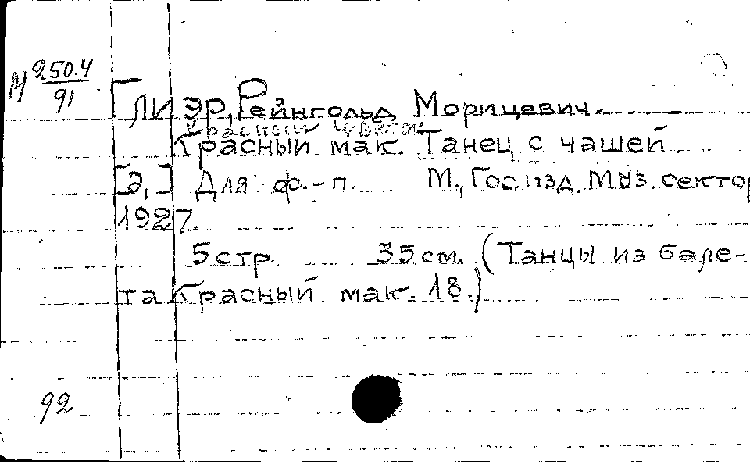 М 250.4
91
Глиэр, Рейнгольд Морицевич.
Красный цветок
Красный мак. Танец с чашей
[д,] Для ф.-п. М., Гос. изд. Муз. сектор
1927.
5 стр. 35 см. (Танцы из бале-
та Красный мак. 18.)
92